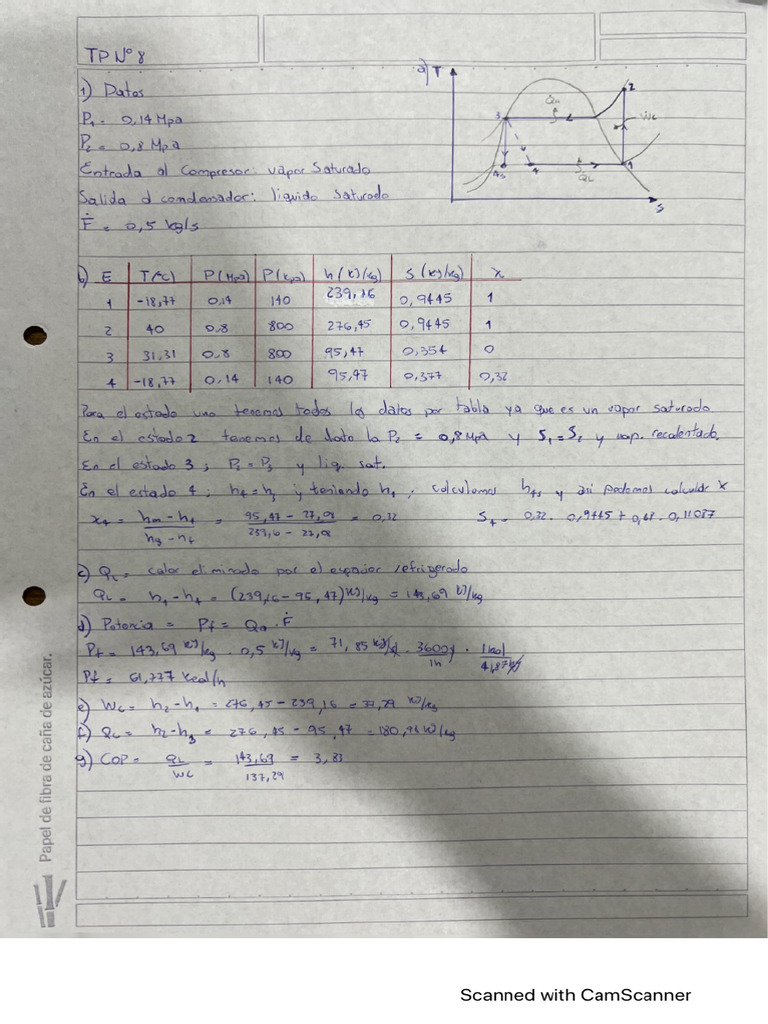 TP Nº 8
1) Datos
P1 = 0,14 Mpa
P2 = 0,8 Mpa
Entrada al Compresor: vapor Saturado
Salida d condensador: liquido saturado
Ḟ = 0,5 kg/s
a) T
2
Q̇H
3
Ẇc
4s 4 1
Q̇L
s
b) E T(ºC) P(Mpa) P(Kpa) h(KJ/kg) S(KJ/kg) x
1 -18,77 0,14 140 239,16 0,9445 1
2 40 0,8 800 276,45 0,9445 1
3 31,31 0,8 800 95,47 0,354 0
4 -18,77 0,14 140 95,47 0,377 0,32
Para el estado uno tenemos todos los datos por tabla ya que es un vapor saturado.
En el estado 2 tenemos de dato la P2 = 0,8 Mpa y S1 = S2 y vap. recalentado.
En el estado 3; P2 = P3 y liq. sat.
En el estado 4; h4 = h3 y teniendo h4, calculamos h4s y asi podemos calcular x
x4 = hm - hf / hg - hf = 95,47 - 27,08 / 239,16 - 27,08 = 0,32 S4 = 0,32 . 0,9445 + 0,68 . 0,11087
c) QL = calor eliminado por el espacio refrigerado
QL = h1 - h4 = (239,16 - 95,47) KJ/kg = 143,69 KJ/kg
d) Potencia = Pf = Qo . Ḟ
Pf = 143,69 KJ/kg . 0,5 KJ/kg = 71,85 KJ/s . 3600s / 1h . 1kcal / 4,187KJ
Pf = 61,777 Kcal/h
e) Wc = h2 - h1 = 276,45 - 239,16 = 37,29 KJ/kg
f) QL = h2 - h3 = 276,45 - 95,47 = 180,98 KJ/kg
g) COP = QL / WC = 143,69 / 137,29 = 3,83
Papel de fibra de caña de azúcar.
Scanned with CamScanner